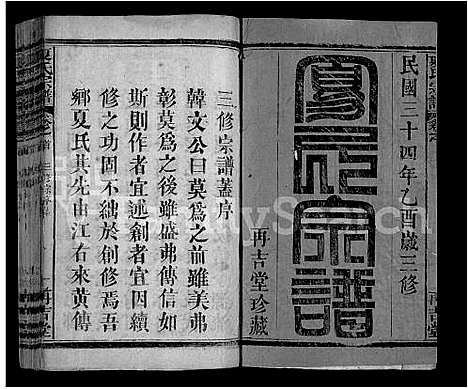 民國三十四年乙酉歲三修
夏氏宗譜
再吉堂珍藏
三修宗譜蓋序
韓文公曰莫為之前雖美弗
彰莫為之後雖盛弗傳信如
斯則作者宜述創者宜因續
修之功固不絀於創修焉吾
鄉夏氏其先由江右來黄傳
夏氏宗譜
再吉堂